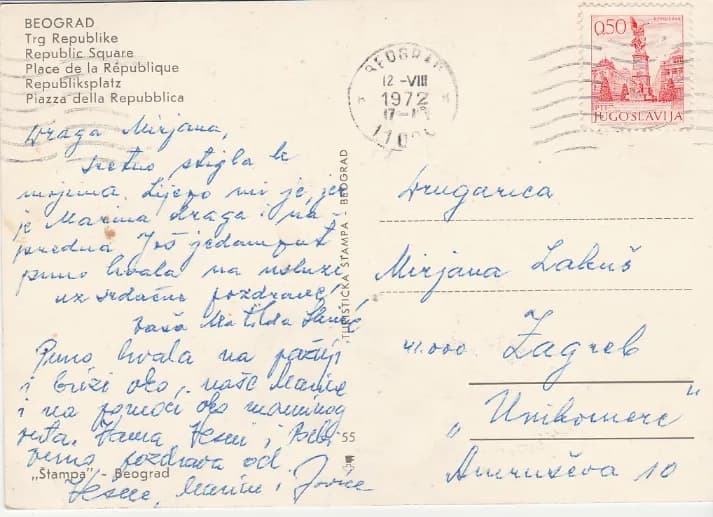 BEOGRAD
Trg Republike
Republic Square
Place de la République
Republiksplatz
Piazza della Repubblica
BEOGRAD
12-VIII
1972
0,50
JUGOSLAVIJA
Draga Mirjana,
sretno stigla k
mojima. Lijepo mi je, jer
je Marina draga i na-
predna Još jedamput
puno hvala na usluzi
uz srdačne pozdrave,
Vaša Matilda
Puno hvala na pažnji
i brizi oko naše Marine
i na pomoći oko maminog
puta. Vama i
pozdrava od
Vesne, Marine i Jovice
TURISTIČKA ŠTAMPA - BEOGRAD
55
„Štampa" - Beograd
Drugarica
Mirjana Lakuš
41.000 Zagreb
„Unikomerc"
Amruševa 10